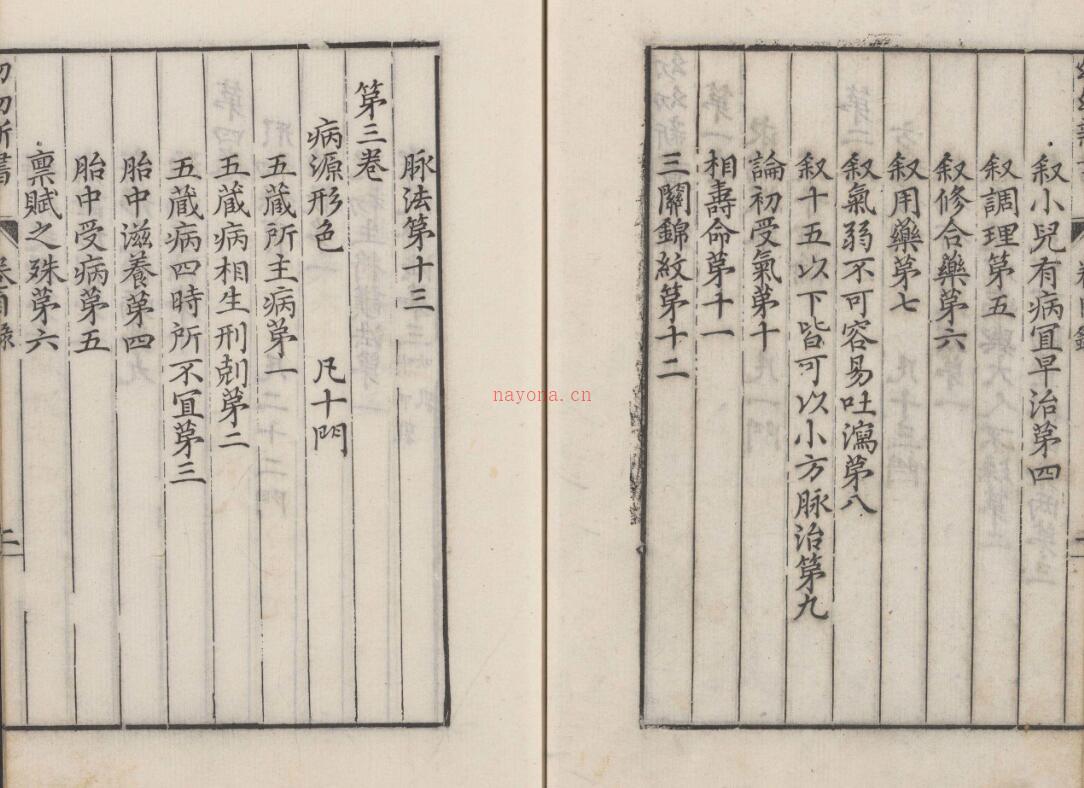 叙小兒有病冝早治第四
叙調理第五
叙修合藥第六
叙用藥第七
叙氣弱不可容易吐瀉苐八
叙十五以下皆可以小方脉治第九
論初受氣苐十
相壽命苐十一
三關錦紋第十二
脉法第十三
第三卷
病源形色 凡十門
五藏所主病苐一
五藏病相生刑剋苐二
五藏病四時所不冝苐三
胎中滋養第四
胎中受病第五
禀賦之殊第六
幼幼新書 卷目錄 二
nayona.cn